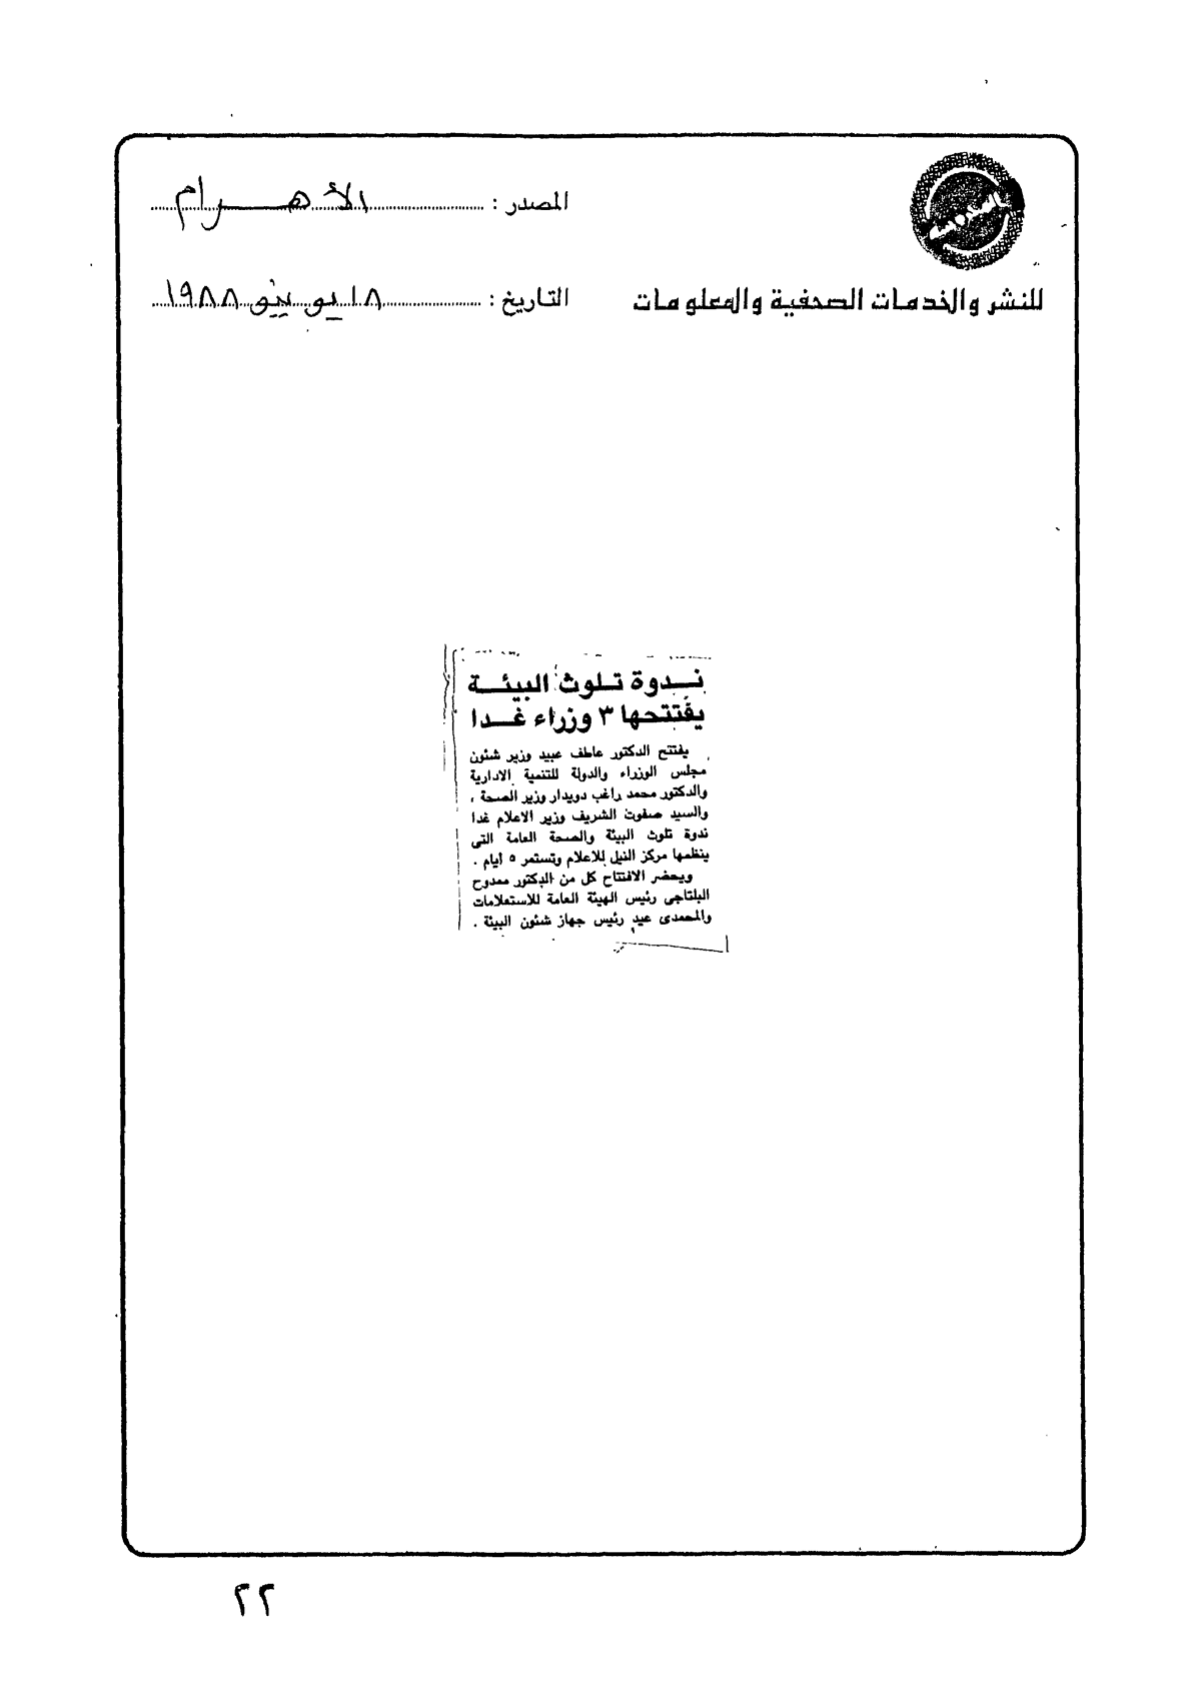 المصدر : الأهرام
للنشر والخدمات الصحفية والمعلومات
التاريخ : ١٨ يونيو ١٩٨٨
ندوة تلوث البيئة
يفتتحها ٣ وزراء غدا
يفتتح الدكتور عاطف عبيد وزير شئون
مجلس الوزراء والدولة للتنمية الادارية
والدكتور محمد راغب دويدار وزير الصحة ،
والسيد صفوت الشريف وزير الاعلام غدا
ندوة تلوث البيئة والصحة العامة التى
ينظمها مركز النيل للاعلام وتستمر ٥ أيام .
ويحضر الافتتاح كل من الدكتور ممدوح
البلتاجى رئيس الهيئة العامة للاستعلامات
والمحمدى عيد رئيس جهاز شئون البيئة .
٢٢